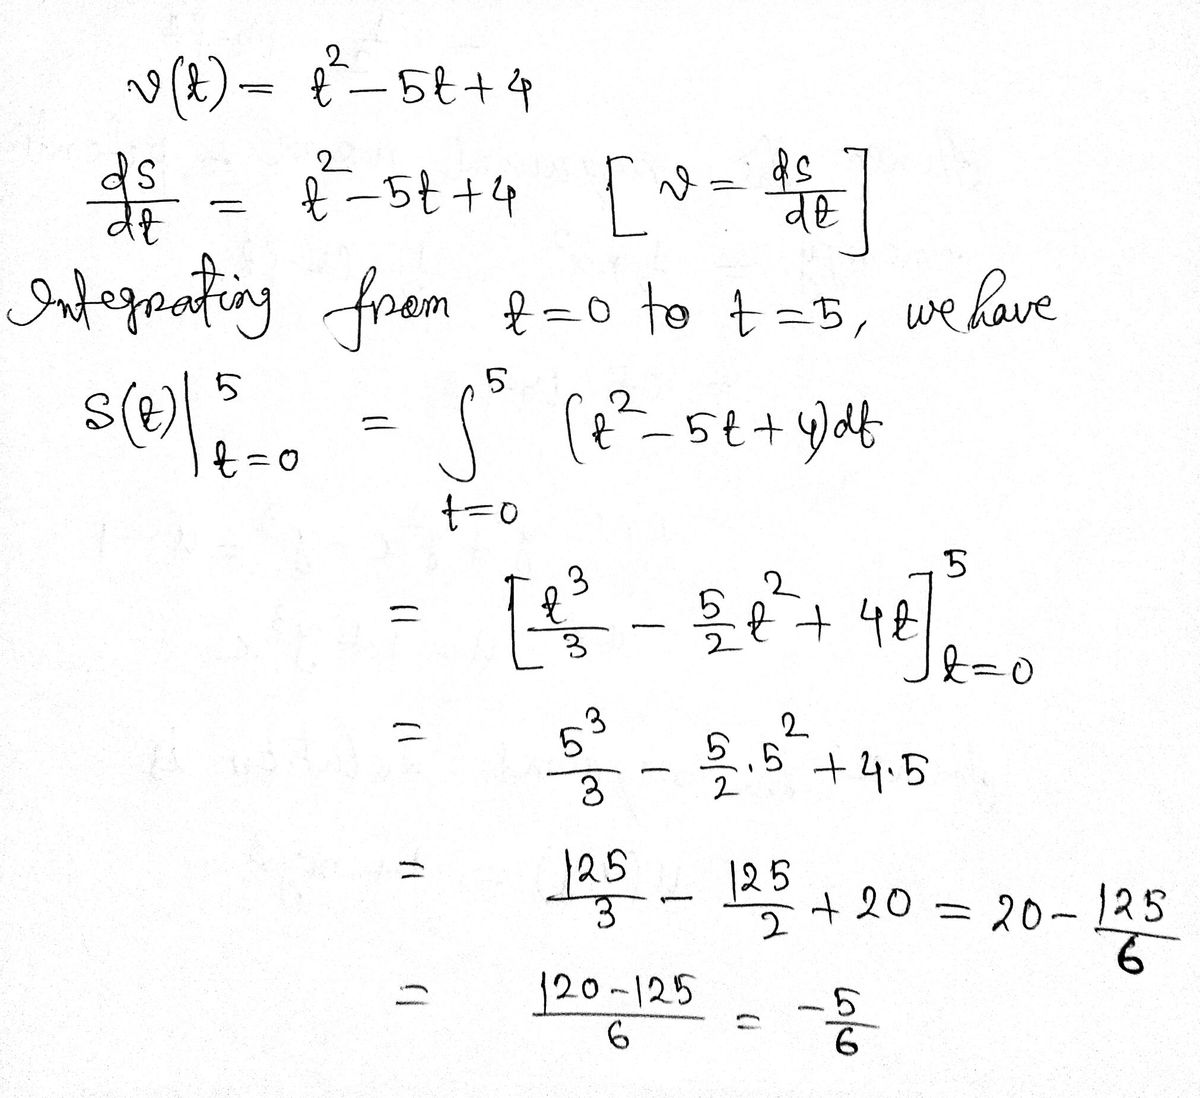 v(t) = t² – 5t + 4
ds/dt = t² – 5t + 4 [v = ds/dt]
Integrating from t=0 to t=5, we have
S(t)|⁵ₜ₌₀ = ∫⁵ₜ₌₀ (t² – 5t + 4)dt
= [t³/3 – 5/2 t² + 4t]⁵ₜ₌₀
= 5³/3 – 5/2 · 5² + 4·5
= 125/3 – 125/2 + 20 = 20 – 125/6
= 120–125/6 = –5/6